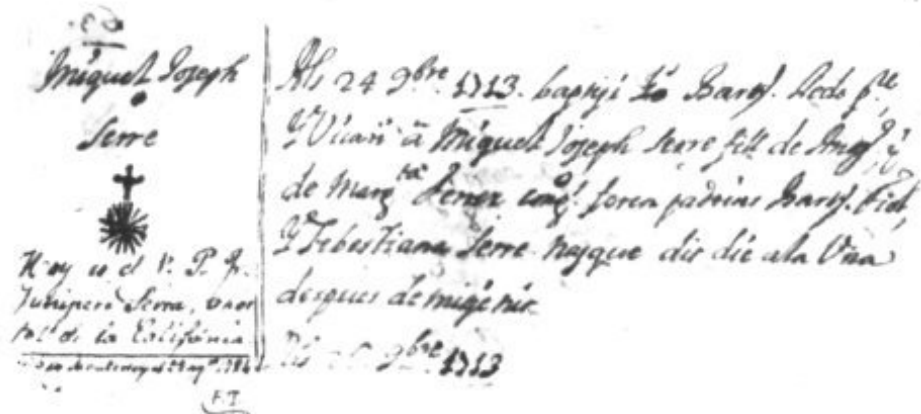 Miquel Joseph
Serre
Hoy es el V. P. Fr.
Junipero Serra,
de la California
F.T.
Als 24 9bre 1713. bapti jo Barth. Lledo pre.
Y Vicari a Miquel Joseph Serre fill de Ant. y
de Margta Ferrer conj. foren padrins Barth. Fiol,
Y Sebestiana Serre nasque dit die a la Una
despues de mige nit.
Als 9bre 1713